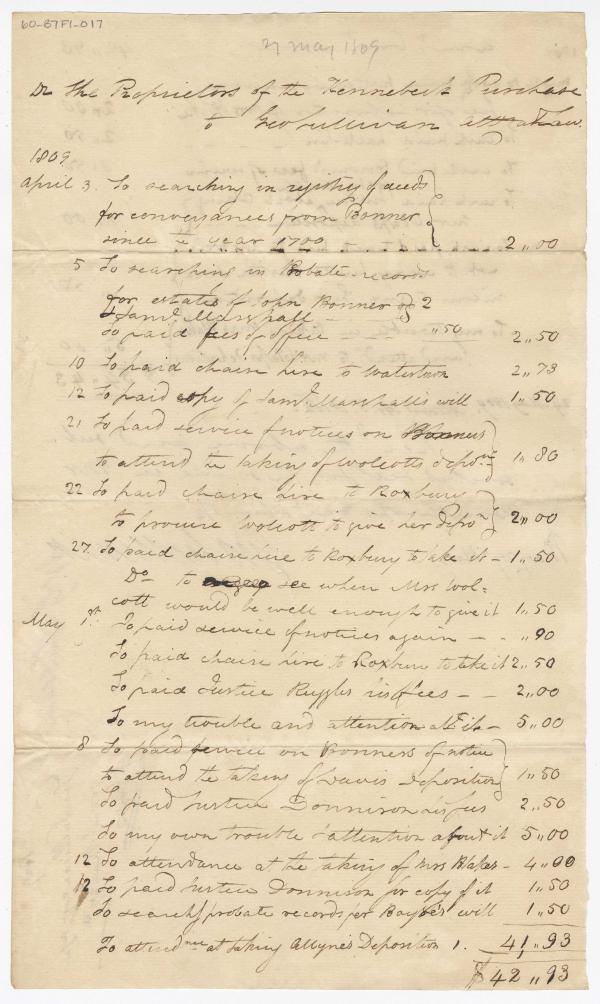 60-87F1-017
27 May 1809
Dr The Proprietors of the Kennebeck Purchase
to Geo Sullivan att at Law.
1809
April 3. To searching in registry of deeds
for conveyances from Bonner
since the year 1700 - 2,,00
5 To searching in Probate records
for estates of John Bonner & 2
Saml. Marshall -
To paid fees of office - - - ,,50 2,,50
10 To paid chaise hire to Watertown 2,,73
12 To paid copy of Saml. Marshall's will 1,,50
21 To paid service of notices on Bonners
to attend the taking of Wolcotts depon. 1,,80
22 To paid chaise hire to Roxbury
to procure Wolcott to give her Depon 2,,00
27. To paid chaise hire to Roxbury to take it - 1,,50
Do to see when Mrs Wol=
cott would be well enough to give it 1,,50
May 1st. To paid service of notices again - - ,,90
To paid chaise hire to Roxbury to take it 2,,50
To paid Justice Ruggles his fees - - 2,,00
To my trouble and attention abt it - 5,,00
8 To paid service on Bonners of notice
to attend the taking of Davis Deposition 1,,50
To paid Justice Donnison his fees 2,,50
To my own trouble & attention about it 5,,00
12 To attendance at the taking of Mrs Blakes - 4,,00
12 To paid Justice Donnison for copy of it 1,,50
To search probate records for will 1,,50
41,,93
To attendance at taking Allyne's Deposition 1.
$42,,93